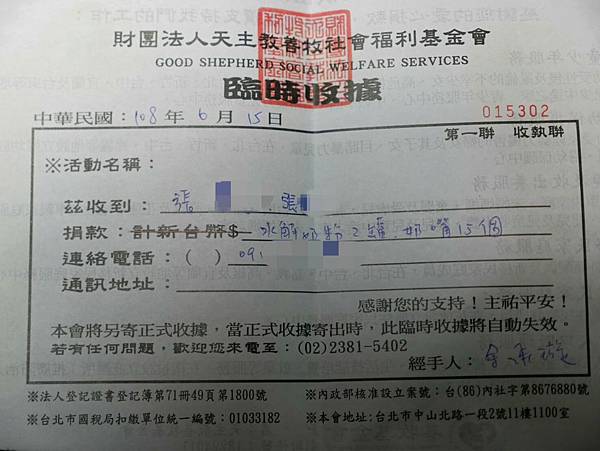 財團法人天主教善牧社會福利基金會
GOOD SHEPHERD SOCIAL WELFARE SERVICES
臨時收據
中華民國：108年6月15日
015302
第一聯 收執聯
※活動名稱：
茲收到：張 張
捐款：計新台幣$ 水解奶粉2罐.奶嘴15個
連絡電話：( ) 09
通訊地址：
感謝您的支持！主祐平安！
本會將另寄正式收據，當正式收據寄出時，此臨時收據將自動失效。
若有任何問題，歡迎您來電至：(02)2381-5402
經手人：
※法人登記證書登記簿第71冊49頁第1800號
※內政部核准設立案號：台(86)內社字第8676880號
※台北市國稅局扣繳單位統一編號：01033182
※本會地址：台北市中山北路一段2號11樓1100室